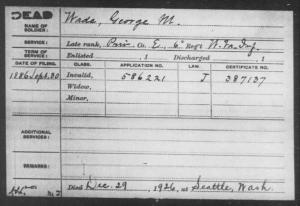 DEAD
NAME OF SOLDIER: Wade, George M.
SERVICE: Late rank, Priv. Co. E, 6" Reg't W.Va. Inf.
TERM OF SERVICE: Enlisted , 1 Discharged , 1
DATE OF FILING. CLASS. APPLICATION NO. LAW. CERTIFICATE NO.
1886 Sept. 20 Invalid, 586221 J 387137
Widow,
Minor,
ADDITIONAL SERVICES:
REMARKS:
Died Dec. 29, 1926, at Seattle, Wash.